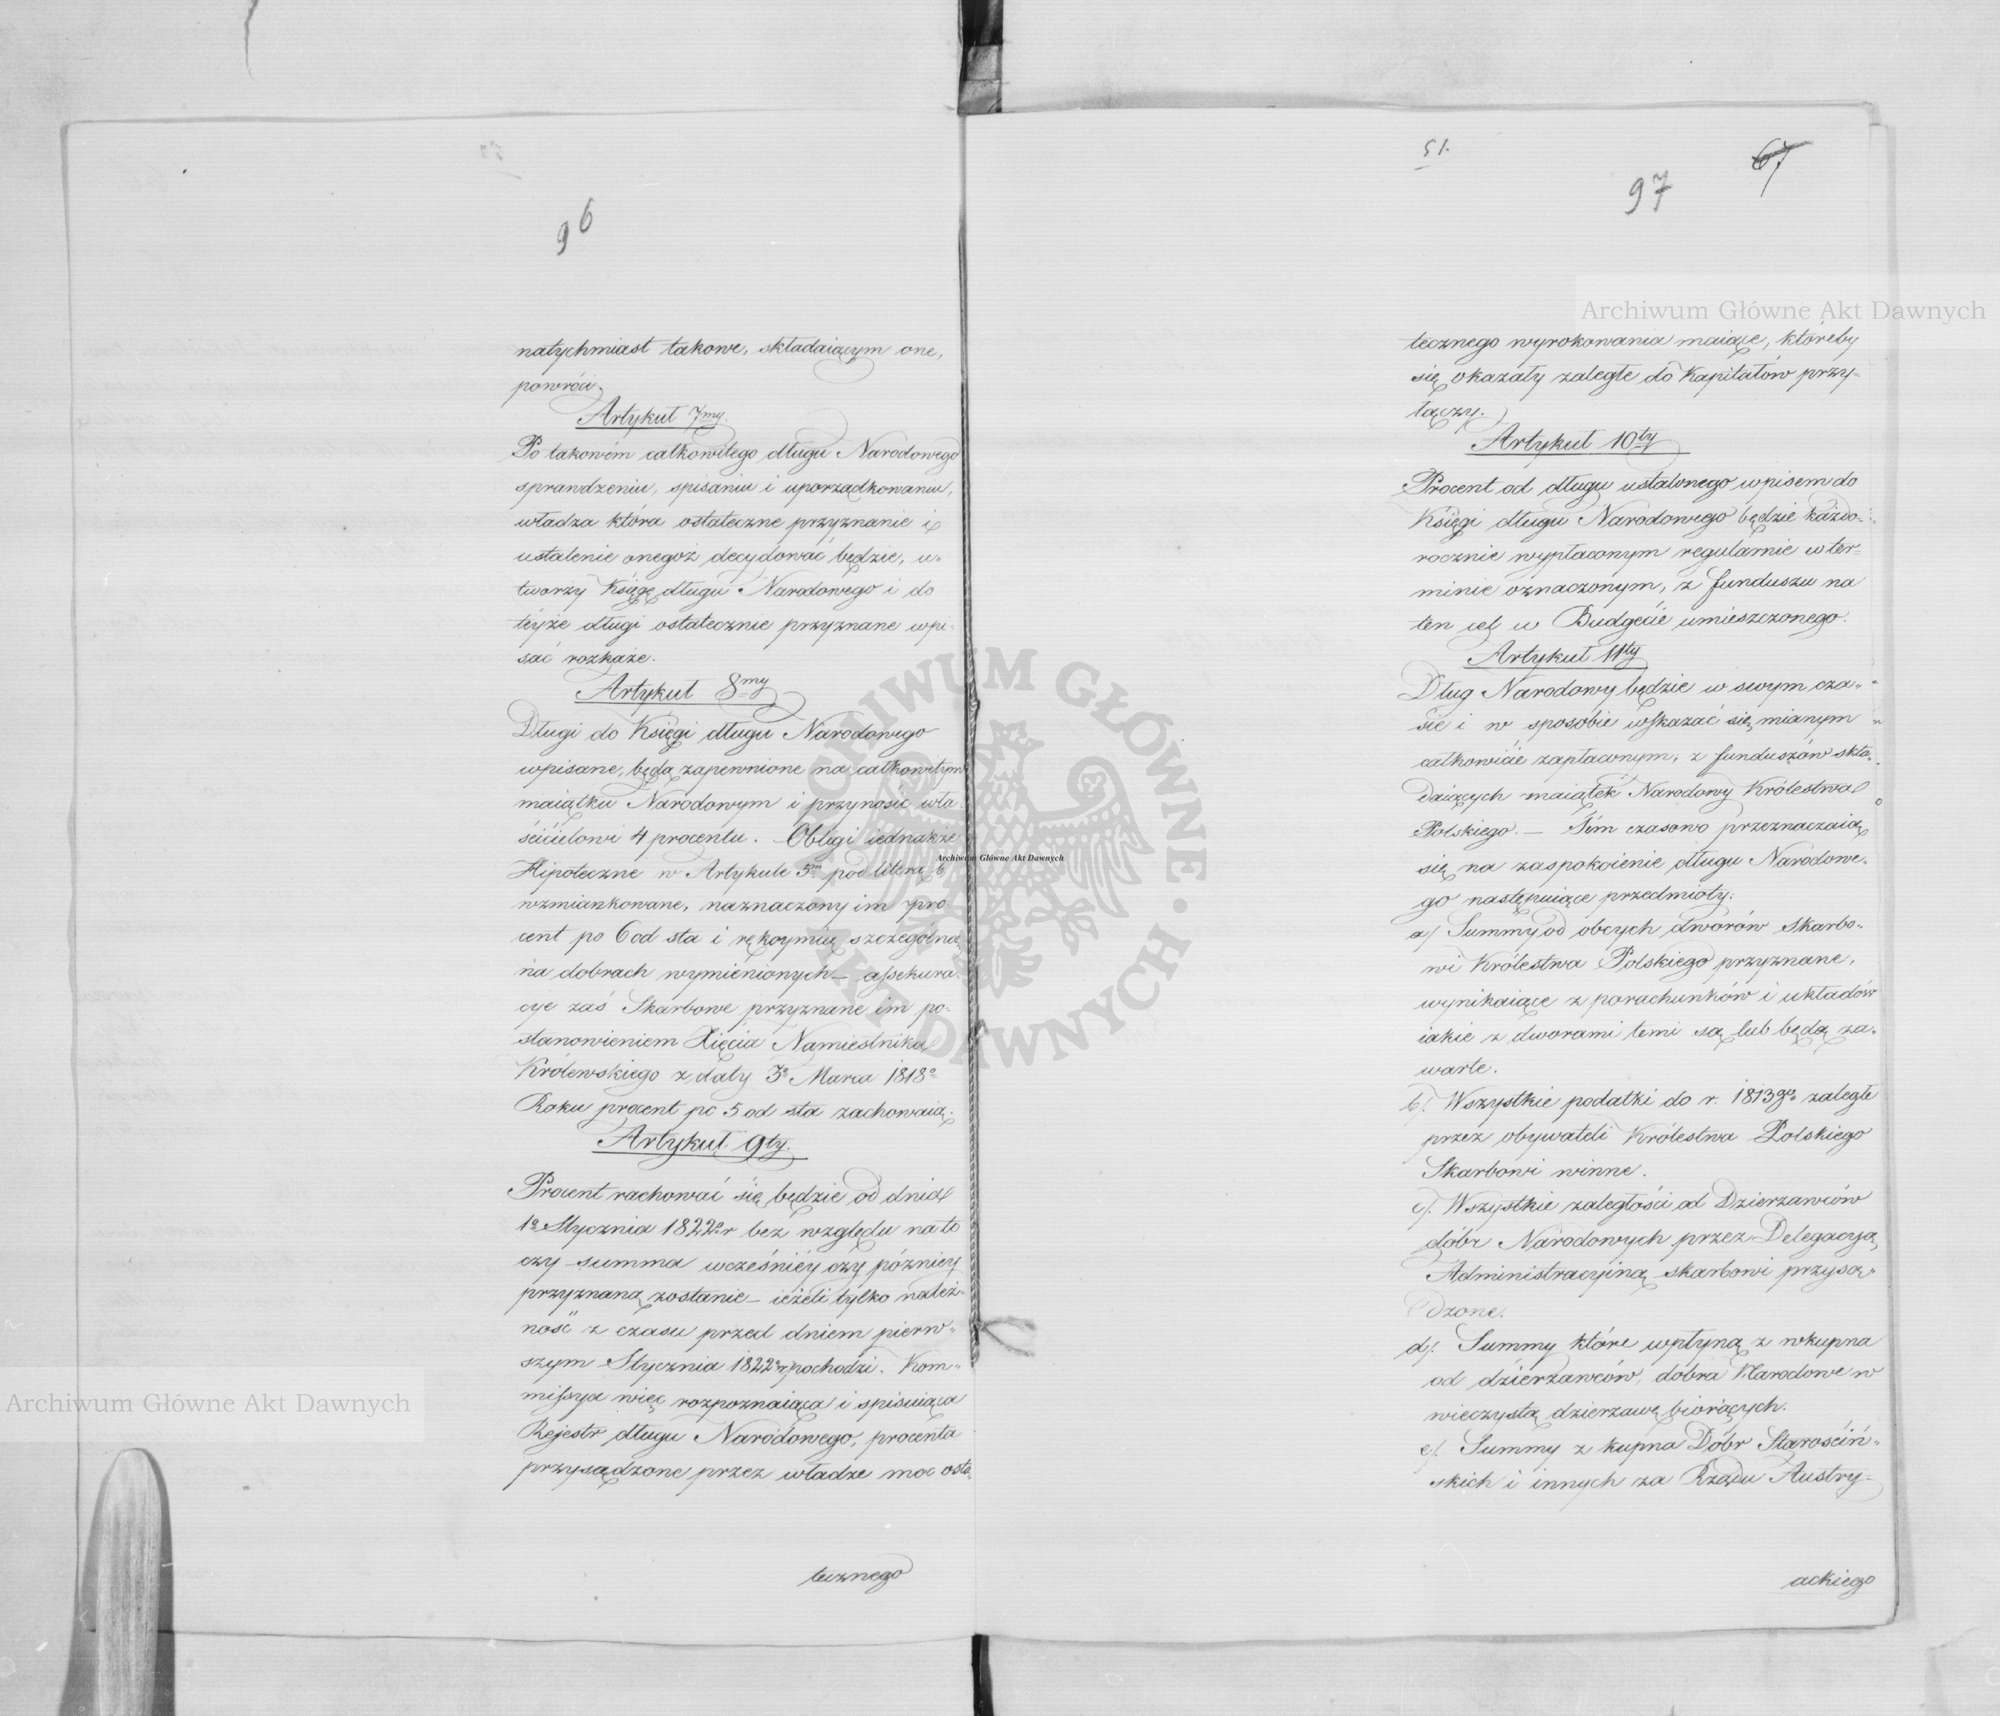 96
natychmiast takowe, składaiącym one,
powróci.
Artykuł 7my.
Po takowém całkowitego długu Narodowego
sprawdzeniu, spisaniu i uporządkowaniu,
władza która ostateczne przyznanie i
ustalenie onegoż decydować będzie, u-
tworzy Księgę długu Narodowego i do
téyże długi ostatecznie przyznane wpi-
sać rozkaże.
Artykuł 8my
Długi do Księgi długu Narodowego
wpisane, będą zapewnione na całkowitym
maiątku Narodowym i przynosić wła
ścicielowi 4 procentu. Obligi iednakże
Hipoteczne w Artykule 5m pod literą b
wzmiankowane, naznaczony im pro
cent po 6 od sta i rękoymią szczególną
na dobrach wymienionych – assekura-
cye zaś Skarbowe przyznane im po-
stanowieniem Xięcia Namiestnika
Królewskiego z daty 3o Marca 1818o
Roku procent po 5 od sta zachowaią.
Artykuł 9ty.
Procent rachować się będzie od dnia
1o Stycznia 1822o r bez względu na to
czy summa wcześniéy czy późniéy
przyznaną zostanie – ieżeli tylko należ-
ność z czasu przed dniem pierw-
szym Stycznia 1822o r pochodzi. Kom-
missya więc rozpoznaiąca i spisuiąca
Rejestr długu Narodowego, procenta
przysądzone przez władze moc osta-
tecznego
51.
67
97
tecznego wyrokowania maiące, któreby
się okazały zaległe do Kapitałów przy-
łączy.
Artykuł 10ty
Procent od długu ustalonego wpisem do
Księgi długu Narodowego będzie każdo-
rocznie wypłaconym regularnie w ter-
minie oznaczonym, z funduszu na
ten cel w Budgécie umieszczonego.
Artykuł 11ty
Dług Narodowy będzie w swym cza-
sie i w sposobie wskazać się mianym
całkowicie zapłaconym, z funduszów skła-
daiących maiątek Narodowy Królestwa
Polskiego. – Tém czasowo przeznaczaią
się na zaspokoienie długu Narodowe-
go następuiące przedmioty:
a/ Summy od obcych dworów Skarbo-
wi Królestwa Polskiego przyznane,
wynikaiące z porachunków i układów
iakie z dworami temi są lub będą za-
warte.
b/. Wszystkie podatki do r. 1813go zaległe
przez obywateli Królestwa Polskiego
Skarbowi winne.
c/. Wszystkie zaległości od Dzierzawców
dóbr Narodowych przez Delegacyą
Administracyiną skarbowi przysą-
dzone.
d/. Summy które wpłyną z wkupna
od dzierzawców, dobra Narodowe w
wieczystą dzierzawę biorących.
e/. Summy z kupna Dóbr Starościń-
skich i innych za Rządu Austry-
ackiego
Archiwum Główne Akt Dawnych
Archiwum Główne Akt Dawnych
Archiwum Główne Akt Dawnych
ARCHIWUM GŁÓWNE • AKT DAWNYCH •